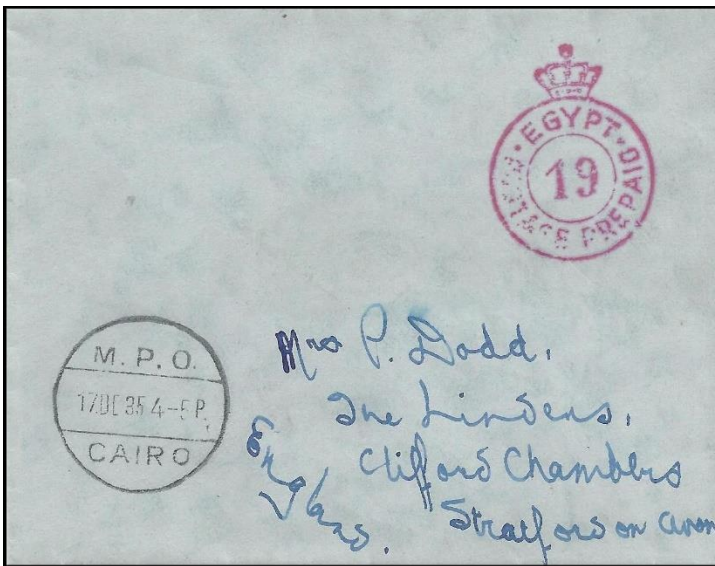 EGYPT
19
POSTAGE PREPAID
M.P.O.
17 DE 35 4-5 P.
CAIRO
Mrs P. Dodd,
The Lindens,
Clifford Chambers
Stratford on avon
England.